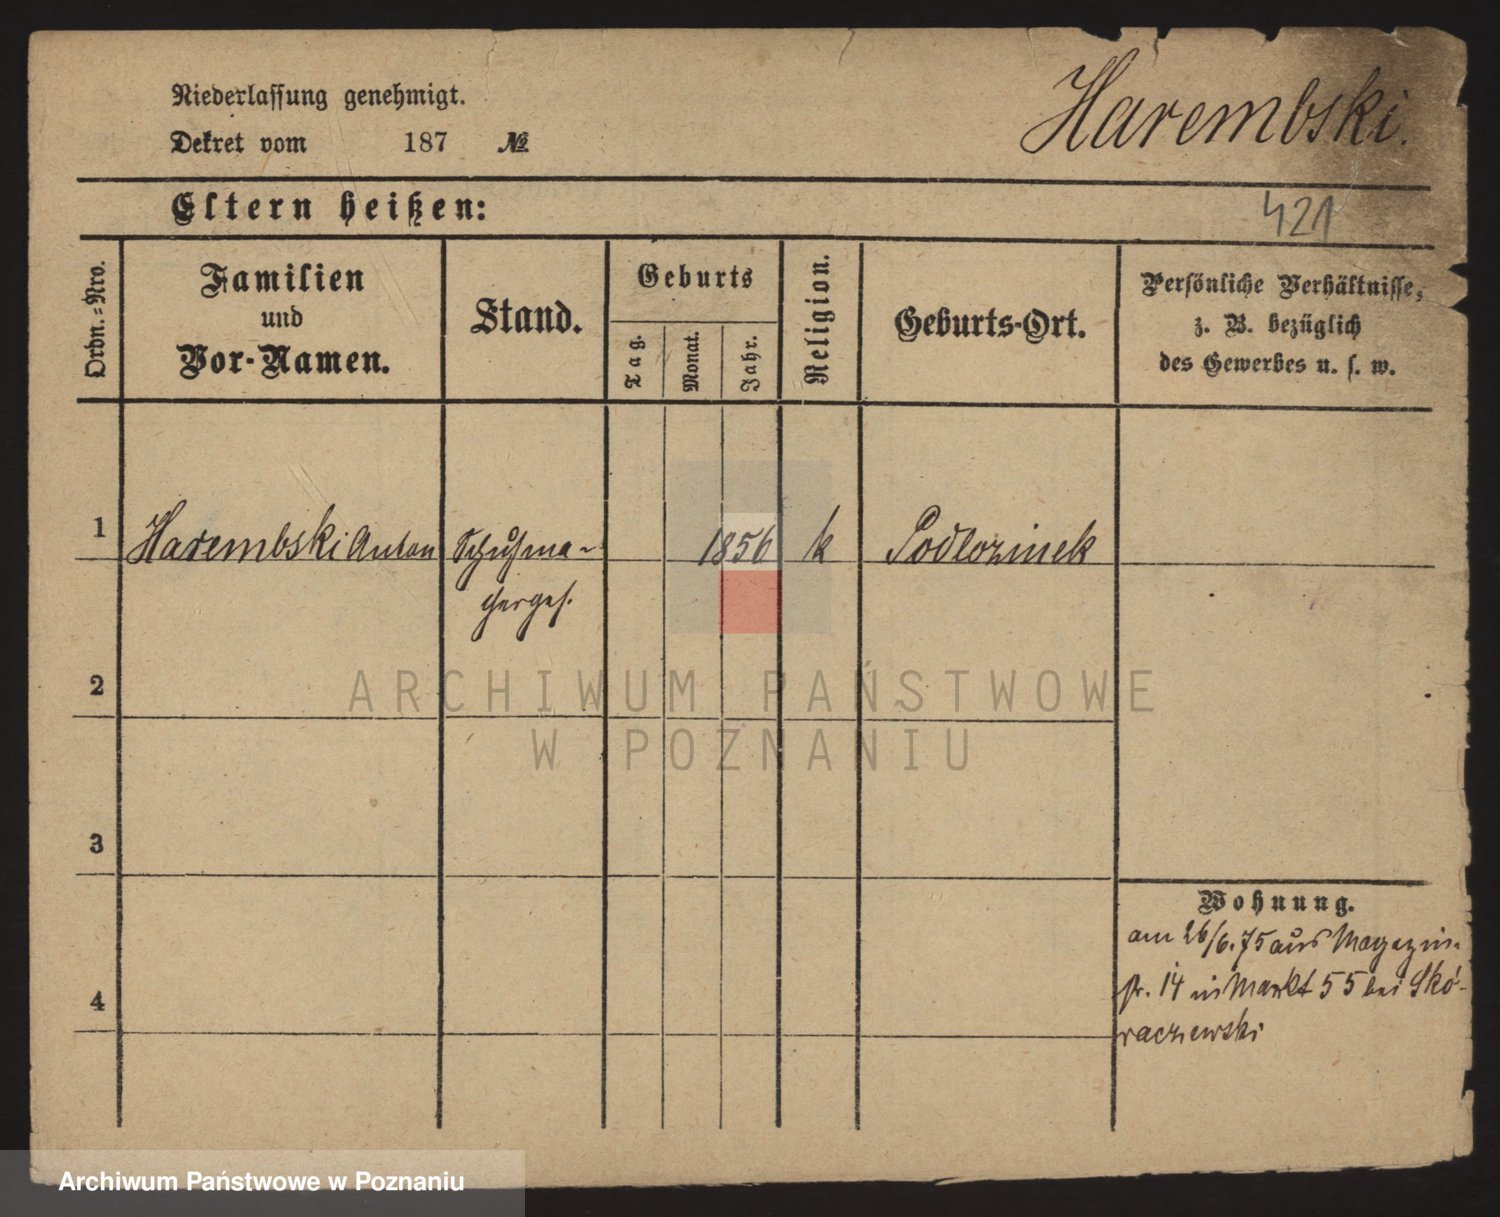 Niederlassung genehmigt.
Dekret vom 187 №
Harembski.
Eltern heißen:
421
Ordn.-Nro.
Familien
und
Vor-Namen.
Stand.
Geburts
Tag.
Monat.
Jahr.
Religion.
Geburts-Ort.
Persönliche Verhältnisse,
z. B. bezüglich
des Gewerbes u. s. w.
1 Harembski Anton Schuhma- 1856 k Podlozinek
cherges.
2
ARCHIWUM PAŃSTWOWE
W POZNANIU
3
Wohnung.
am 26/6.75 aus Magazin-
str. 14 in Markt 55 bei Skó-
raczewski
4
Archiwum Państwowe w Poznaniu